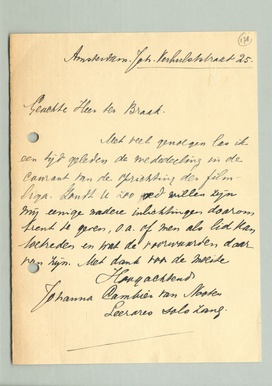 Amsterdam. Joh. Verhulststraat 25.
Geachte Heer ter Braak.
Met veel genoegen las ik
een tijd geleden de mededeeling in de
courant van de oprichting der film-
liga. Zoudt u zoo goed willen zijn
mij eenige nadere inlichtingen daarom-
trent te geven, o.a. of men als lid kan
toetreden en wat de voorwaarden daar
van zijn. Met dank voor de moeite
Hoogachtend
Johanna Cambier van Nooten
Leerares solo zang.